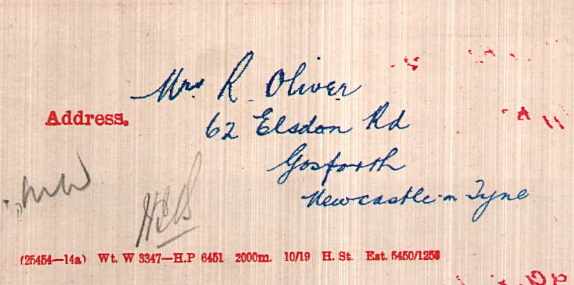 Mrs R. Oliver
Address.
62 Elsdon Rd
Gosforth
Newcastle-on Tyne
(25454—14a) Wt. W 3347—H.P 6451 2000m. 10/19 H. St. Est. 5450/1258